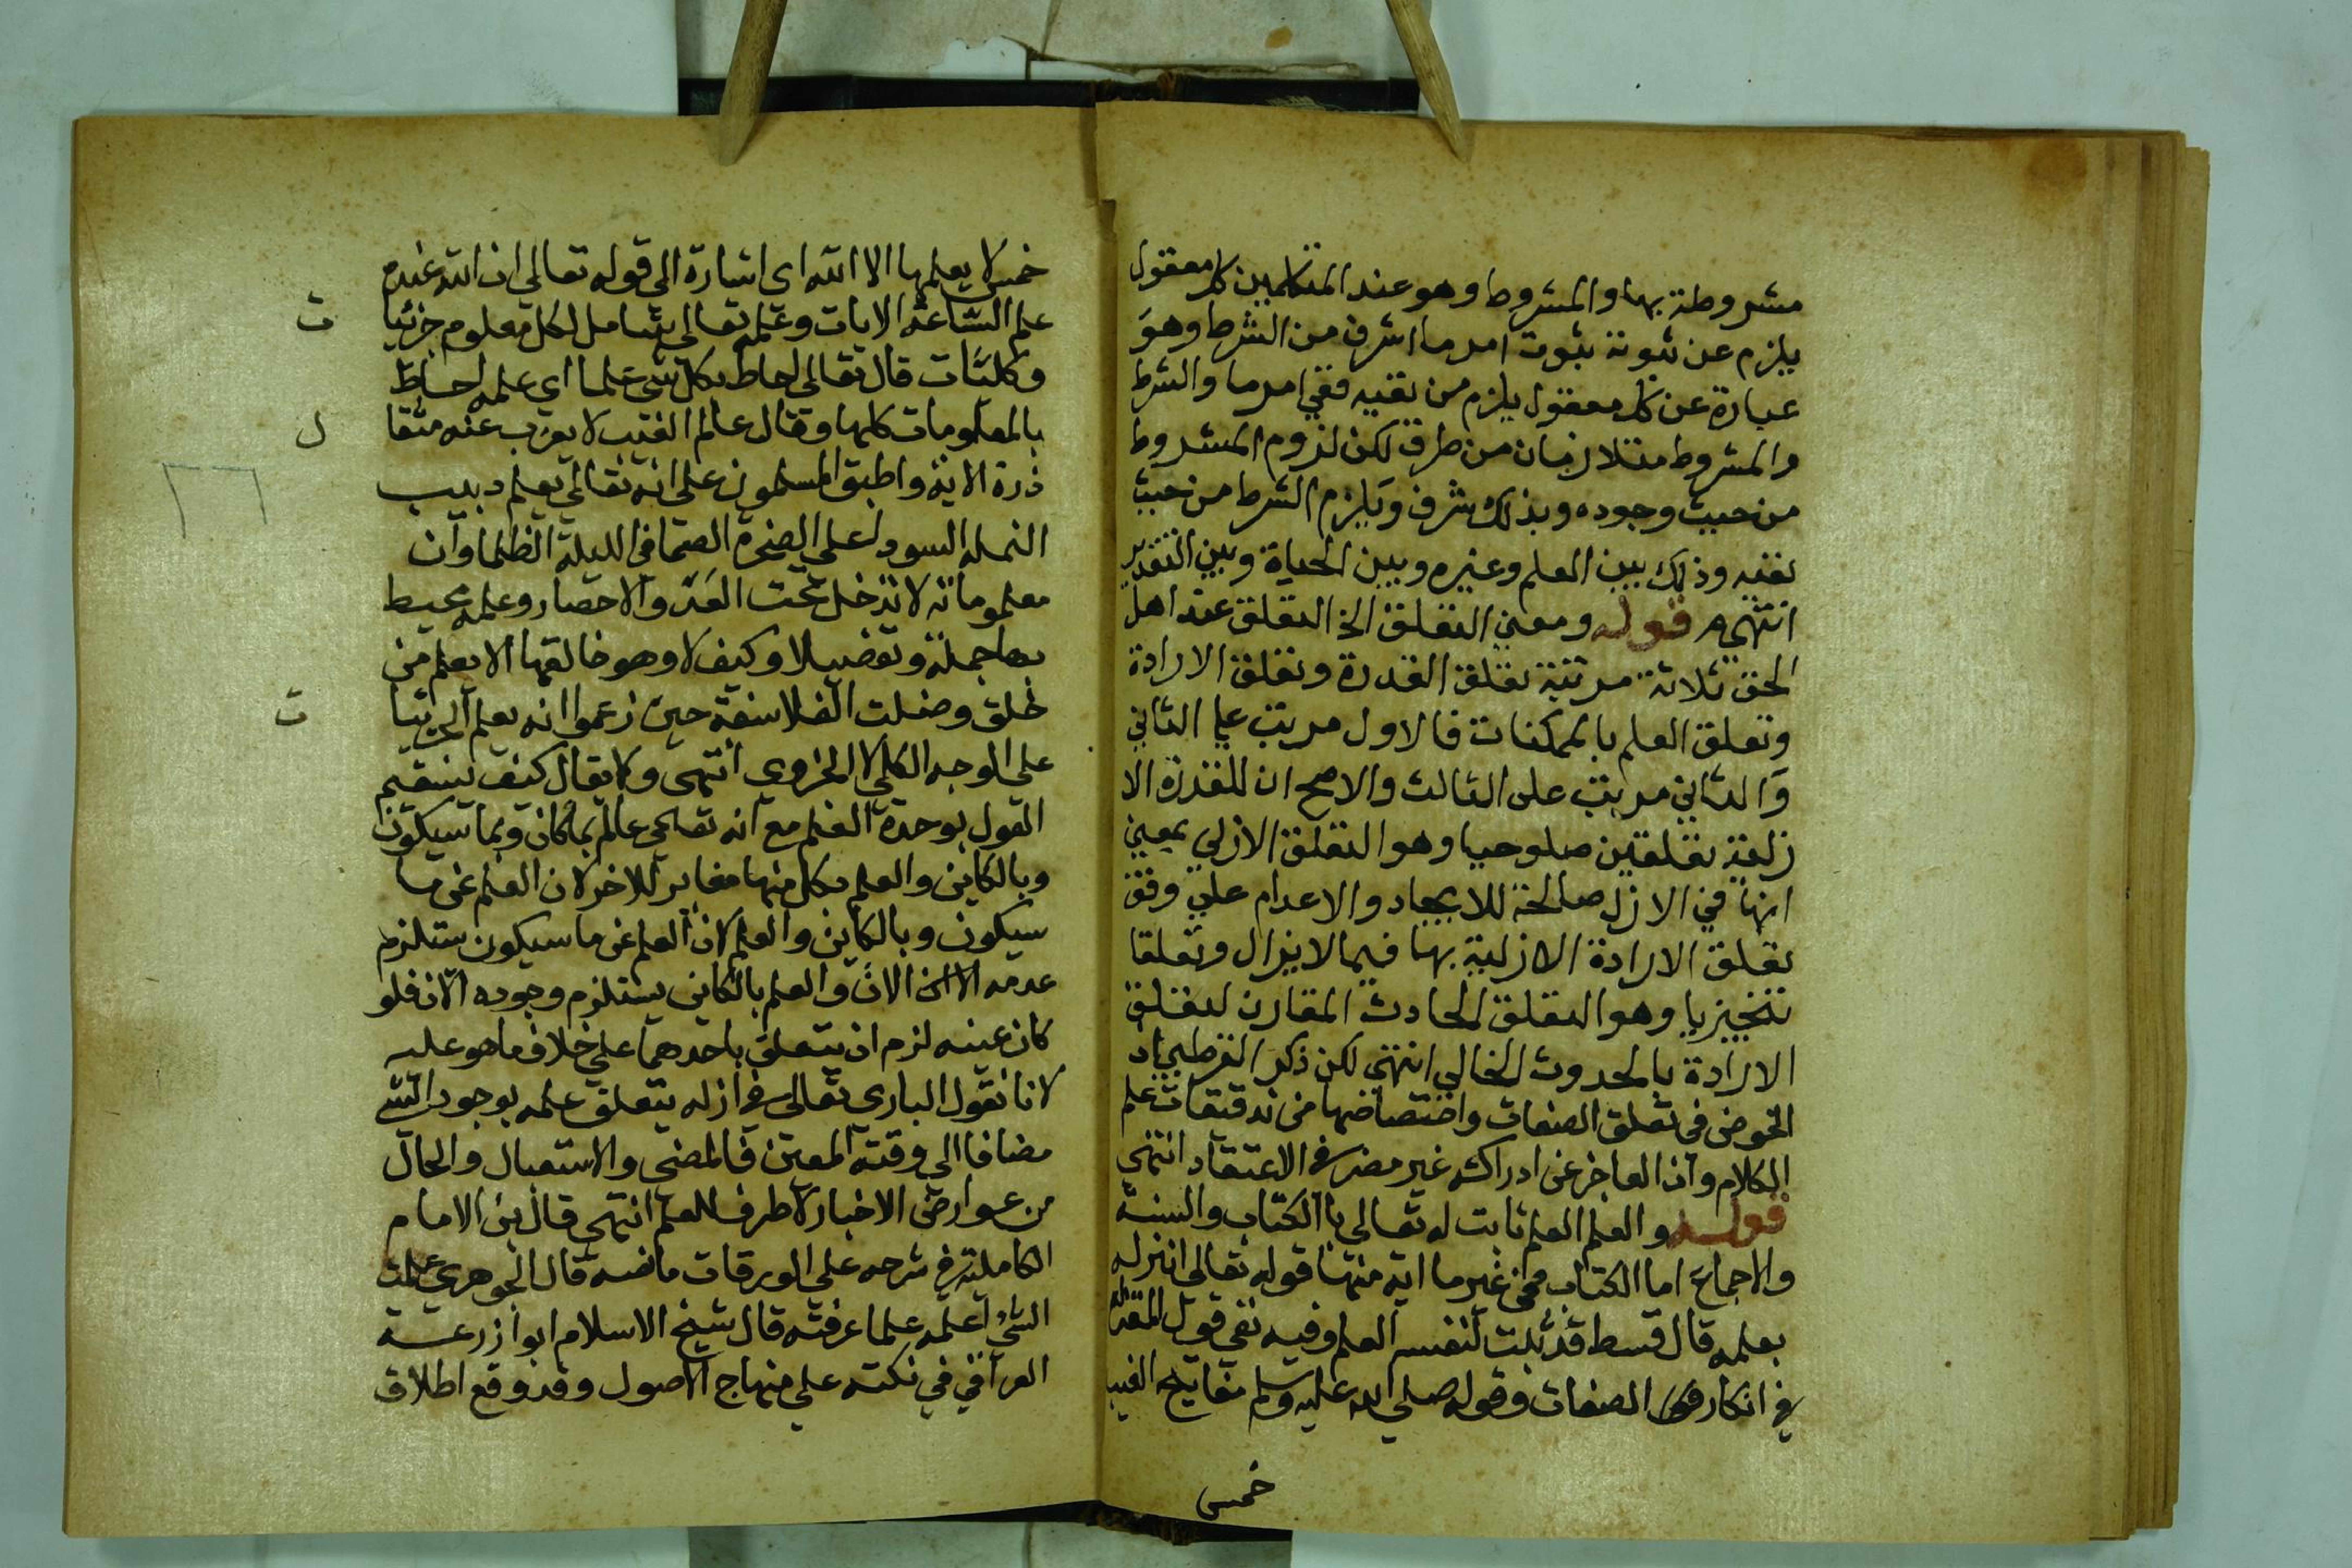 مشروطة بها والمشروط وهو عند المتكلمين كل معقول
يلزم عن ثبوته ثبوت امر ما اشرف من الشرط وهو
عبارة عن كل معقول يلزم من نفيه نفي امر ما والشرط
والمشروط متلازمان من طرف لكن لزوم المشروط
من حيث وجوده وبذلك شرف ويلزم الشرط من حيث
نفيه وذلك بين العلم وغيره وبين الحياة وبين التقدير
انتهى قوله ومعنى التعلق الخ التعلق عند اهل
الحق ثلاثة مرتبة تعلق القدرة وتعلق الارادة
وتعلق العلم بالممكنات فالاول مرتب علي الثاني
والثاني مرتب على الثالث والاصح ان للقدرة الا
زلية تعلقين صلوحيا وهو التعلق الازلي بمعني
انها في الازل صالحة للايجاد والاعدام علي وفق
تعلق الارادة الازلية بها فيما لا يزال وتعلقا
تنجيزيا وهو التعلق الحادث المقارن لتعلق
الارادة بالحدوث الحالي انتهى لكن ذكر القرطبي ان
الخوض في تعلق الصفات واختصاصها من تدقيقات علم
الكلام وان العاجز عن ادراكه غير مضر في الاعتقاد انتهى
قوله والعلم العلم ثابت له تعالى باالكتاب والسنة
والاجماع اما الكتاب فمن غير ما اية منها قوله تعالى انزله
بعلمه قال قسط قد ثبلت لنفسه العلم وفيه نفي قول المعتزلة
في انكار الصفات وقوله صلي الله عليه وسلم مفاتيح الغيب
خمس
خمس لا يعلمها الا الله اى اشارة الى قوله تعالى ان الله عنده
علم الساعة الايات وعلمه تعالى شامل لكل معلوم جزئيا
ت
وكليات قال تعالى احاط بكل شي علما اي علمه احاط
بالمعلومات كلها وقال عالم الغيب لا يعزب عنه مثقا
ل
ذرة الاية واطبق المسلمون على انه تعالى يعلم دبيب
٢٦
النمله السودا على الصخرة الصما في الليلة الظلما وان
معلوماته لا تدخل تحت العد والاحصار وعلمه محيط
بها جملة وتفصيلا وكيف لا وهو خالقها الا يعلم من
خلق وضلت الفلاسفة حين زعموا انه يعلم الجزئيا
ت
على الوجه الكلي لا الجزوي انتهى ولا يقال كيف يستقيم
القول بوحدة العلم مع انه تعالى عالم بما كان وبما سيكون
وبالكاين والعلم بكل منها مغاير للاخر لان العلم عن ما
سيكون وبالكاين والعلم لان العلم عن ما سيكون ستلزم
عدمه الان والعلم بالكاين يستلزم وجوده الان فلو
كان عينه لزم ان يتعلق باحدهما علي خلاف ما هو عليه
لانا نقول البارى تعالى في ازله يتعلق علمه بوجود الشي
مضافا الي وقته المعين فالمضي والاستقبال والحال
من عوارض الاخبار لا طرف للعلم انتهى قال بن الامام
الكاملية في شرحه علي الورقات ما نصه قال الجوهري علمت
الشئ اعلمه علما عرفته قال شيخ الاسلام ابوا زرعة
العراقي في نكته علي منهاج الاصول وقد وقع اطلاق